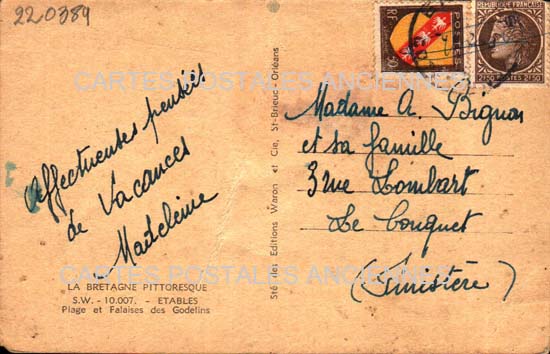 220384
CARTES POSTALES ANCIENNES
RF
POSTES
50
REPUBLIQUE FRANÇAISE
2F50 POSTES 2F50
Affectueuses pensées
de Vacances
Madeleine
Madame A. Bignon
et sa famille
3 rue Lombart
Le Conquet
(Finistère)
Sté des Editions Waron et Cie, St-Brieuc - Orléans
LA BRETAGNE PITTORESQUE
S.W. - 10.007. - ETABLES
Plage et Falaises des Godelins
CARTES POSTALES ANCIENNES